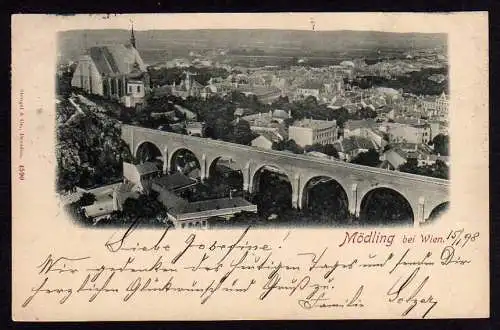 Stengel & Co., Dresden. 4590
Mödling bei Wien. 15/1 98
Liebe Jacobine!
Wir gedenken des heutigen Tages und senden Dir
herzlichen Glückwunsch und Gruß zu.
Familie